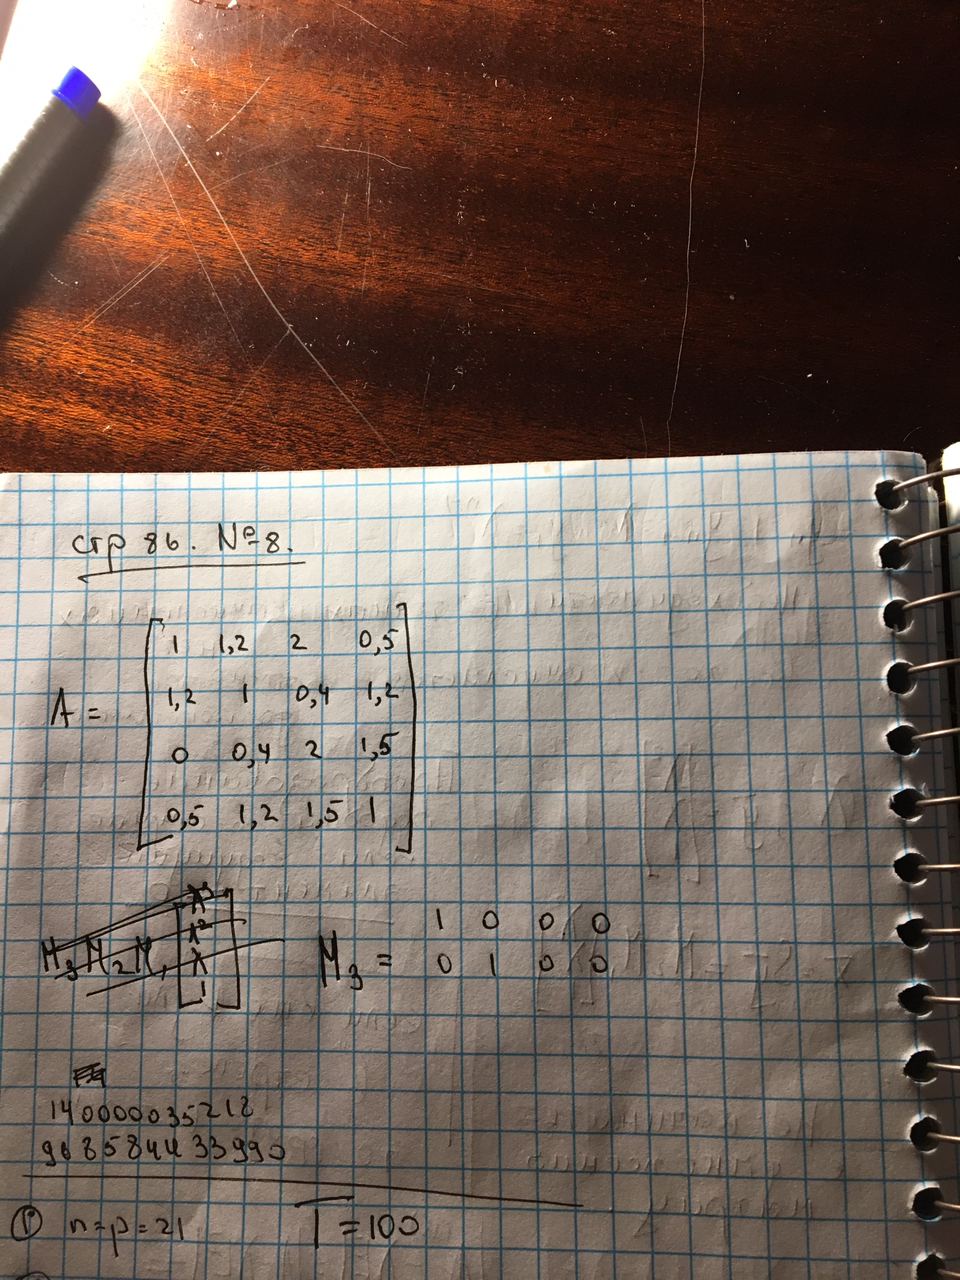 стр 86. № 8.
1 1,2 2 0,5
A = 1,2 1 0,4 1,2
0 0,4 2 1,5
0,5 1,2 1,5 1
M₃ = 1 0 0 0
0 1 0 0
140000035212
968584433990
n=p=21 T=100